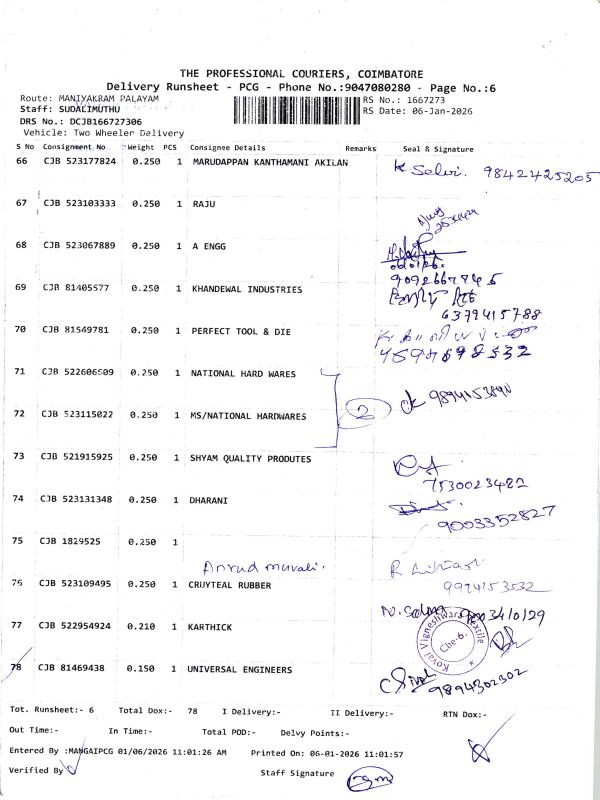 THE PROFESSIONAL COURIERS, COIMBATORE
Delivery Runsheet - PCG - Phone No.:9047080280 - Page No.:6
Route: MANIYAKRAM PALAYAM
RS No.: 1667273
Staff: SUDALIMUTHU
RS Date: 06-Jan-2026
DRS No.: DCJB166727306
Vehicle: Two Wheeler Delivery
S No Consignment No Weight PCS Consignee Details Remarks Seal & Signature
66 CJB 523177824 0.250 1 MARUDAPPAN KANTHAMANI AKILAN
K Selvi. 9842425205
67 CJB 523103333 0.250 1 RAJU
68 CJB 523067889 0.250 1 A ENGG
69 CJB 81405577 0.250 1 KHANDEWAL INDUSTRIES
6379415788
70 CJB 81549781 0.250 1 PERFECT TOOL & DIE
71 CJB 522606509 0.250 1 NATIONAL HARD WARES
2
72 CJB 523115022 0.250 1 MS/NATIONAL HARDWARES
73 CJB 521915925 0.250 1 SHYAM QUALITY PRODUTES
7530023482
74 CJB 523131348 0.250 1 DHARANI
9003352827
75 CJB 1829525 0.250 1
76 CJB 523109495 0.250 1 CRUYTEAL RUBBER
9924153532
77 CJB 522954924 0.210 1 KARTHICK
Koval Vigneshwara Textile
Cbe-6.
78 CJB 81469438 0.150 1 UNIVERSAL ENGINEERS
9894302302
Tot. Runsheet:- 6 Total Dox:- 78 I Delivery:- II Delivery:- RTN Dox:-
Out Time:- In Time:- Total POD:- Delvy Points:-
Entered By :MANGAIPCG 01/06/2026 11:01:26 AM Printed On: 06-01-2026 11:01:57
Verified By
Staff Signature